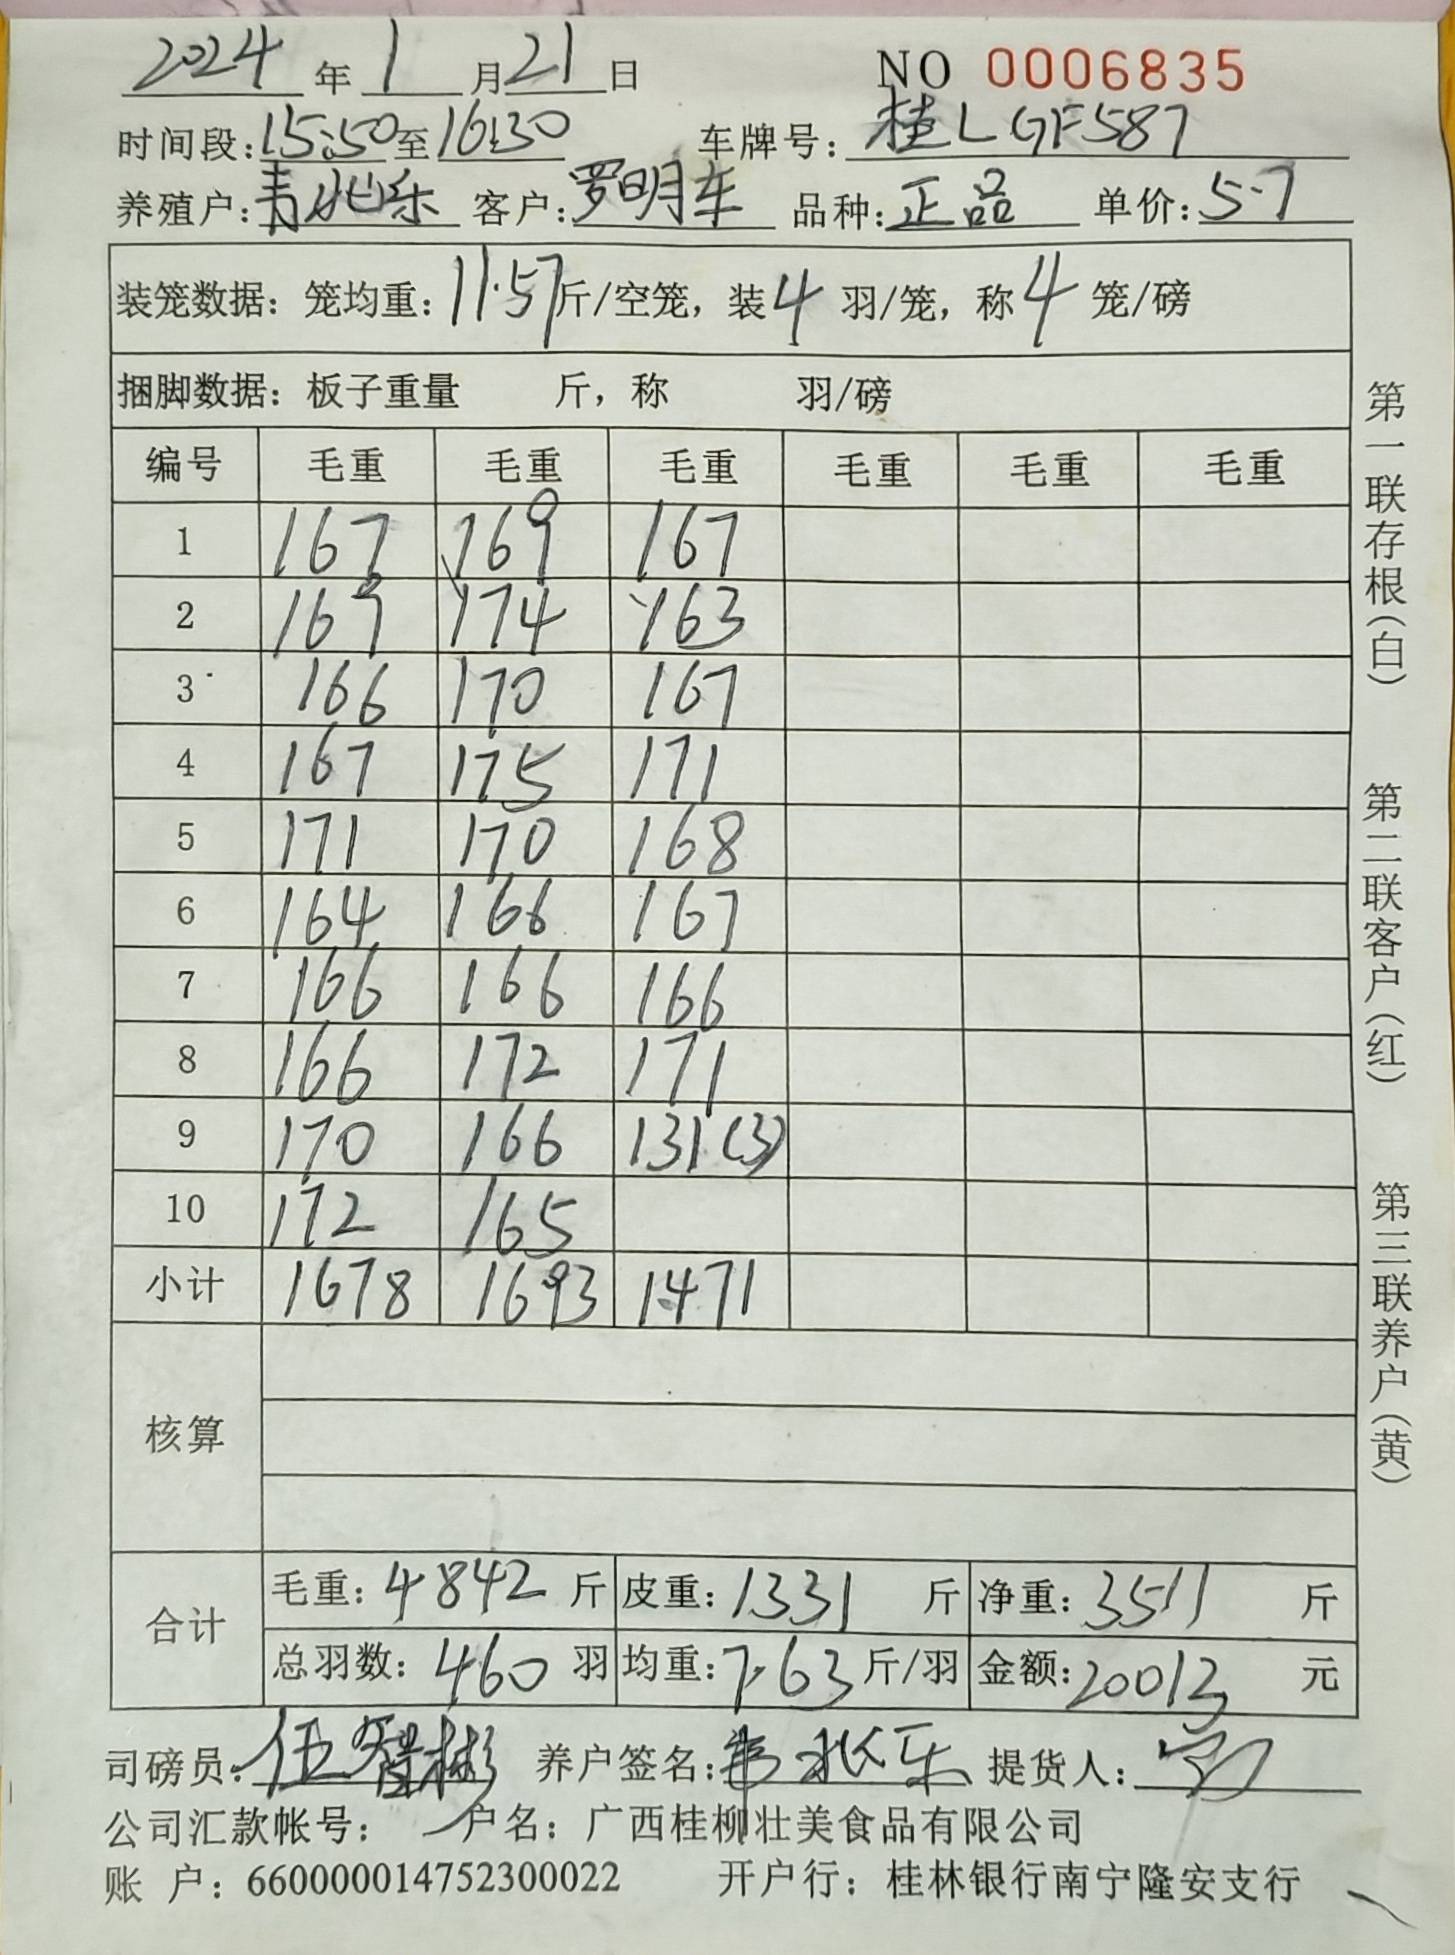 2024年1月21日 NO 0006835
时间段:15:50至16:30 车牌号:桂LGF587
养殖户:韦兆乐 客户:罗明车 品种:正品 单价:5.7
装笼数据:笼均重:11.57斤/空笼,装4羽/笼,称4笼/磅
捆脚数据:板子重量 斤,称 羽/磅
编号 毛重 毛重 毛重 毛重 毛重 毛重
1 167 169 167
2 169 174 163
3 166 170 167
4 167 175 171
5 171 170 168
6 164 166 167
7 166 166 166
8 166 172 171
9 170 166 131(3)
10 172 165
小计 1678 1693 1471
核算
合计 毛重:4842斤 皮重:1331斤 净重:3511斤
总羽数:460羽 均重:7.63斤/羽 金额:20013元
司磅员:伍智彬 养户签名:韦兆乐 提货人:
公司汇款帐号: 户名:广西桂柳壮美食品有限公司
账 户:660000014752300022 开户行:桂林银行南宁隆安支行
第一联存根(白) 第二联客户(红) 第三联养户(黄)